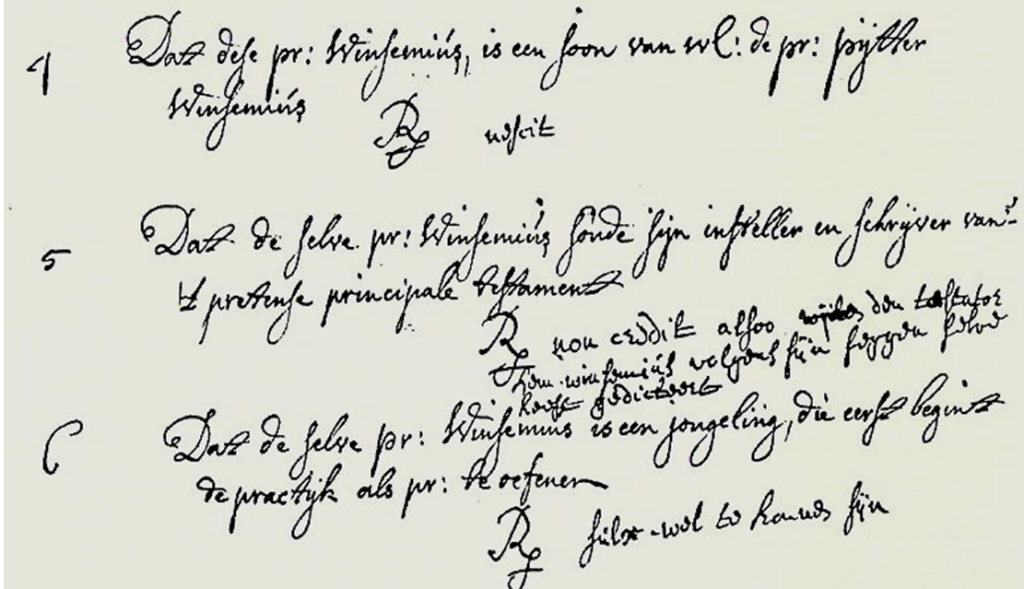 4 Dat dese pr: Winsemiús, is een soon van wl: de pr: pijtter
Winsemiús
R nescit
5 Dat de selve pr: Winsemiús soude sijn insteller en schrijver van
't pretense principale testament
R non credit alsoo den testator
hem winsemiús volgens sijn seggen selve
heeft gedicteert
6 Dat de selve pr: Winsemius is een jongeling, die eerst begint
de practijk als pr: te oefenen
R sulx wel te connen sijn